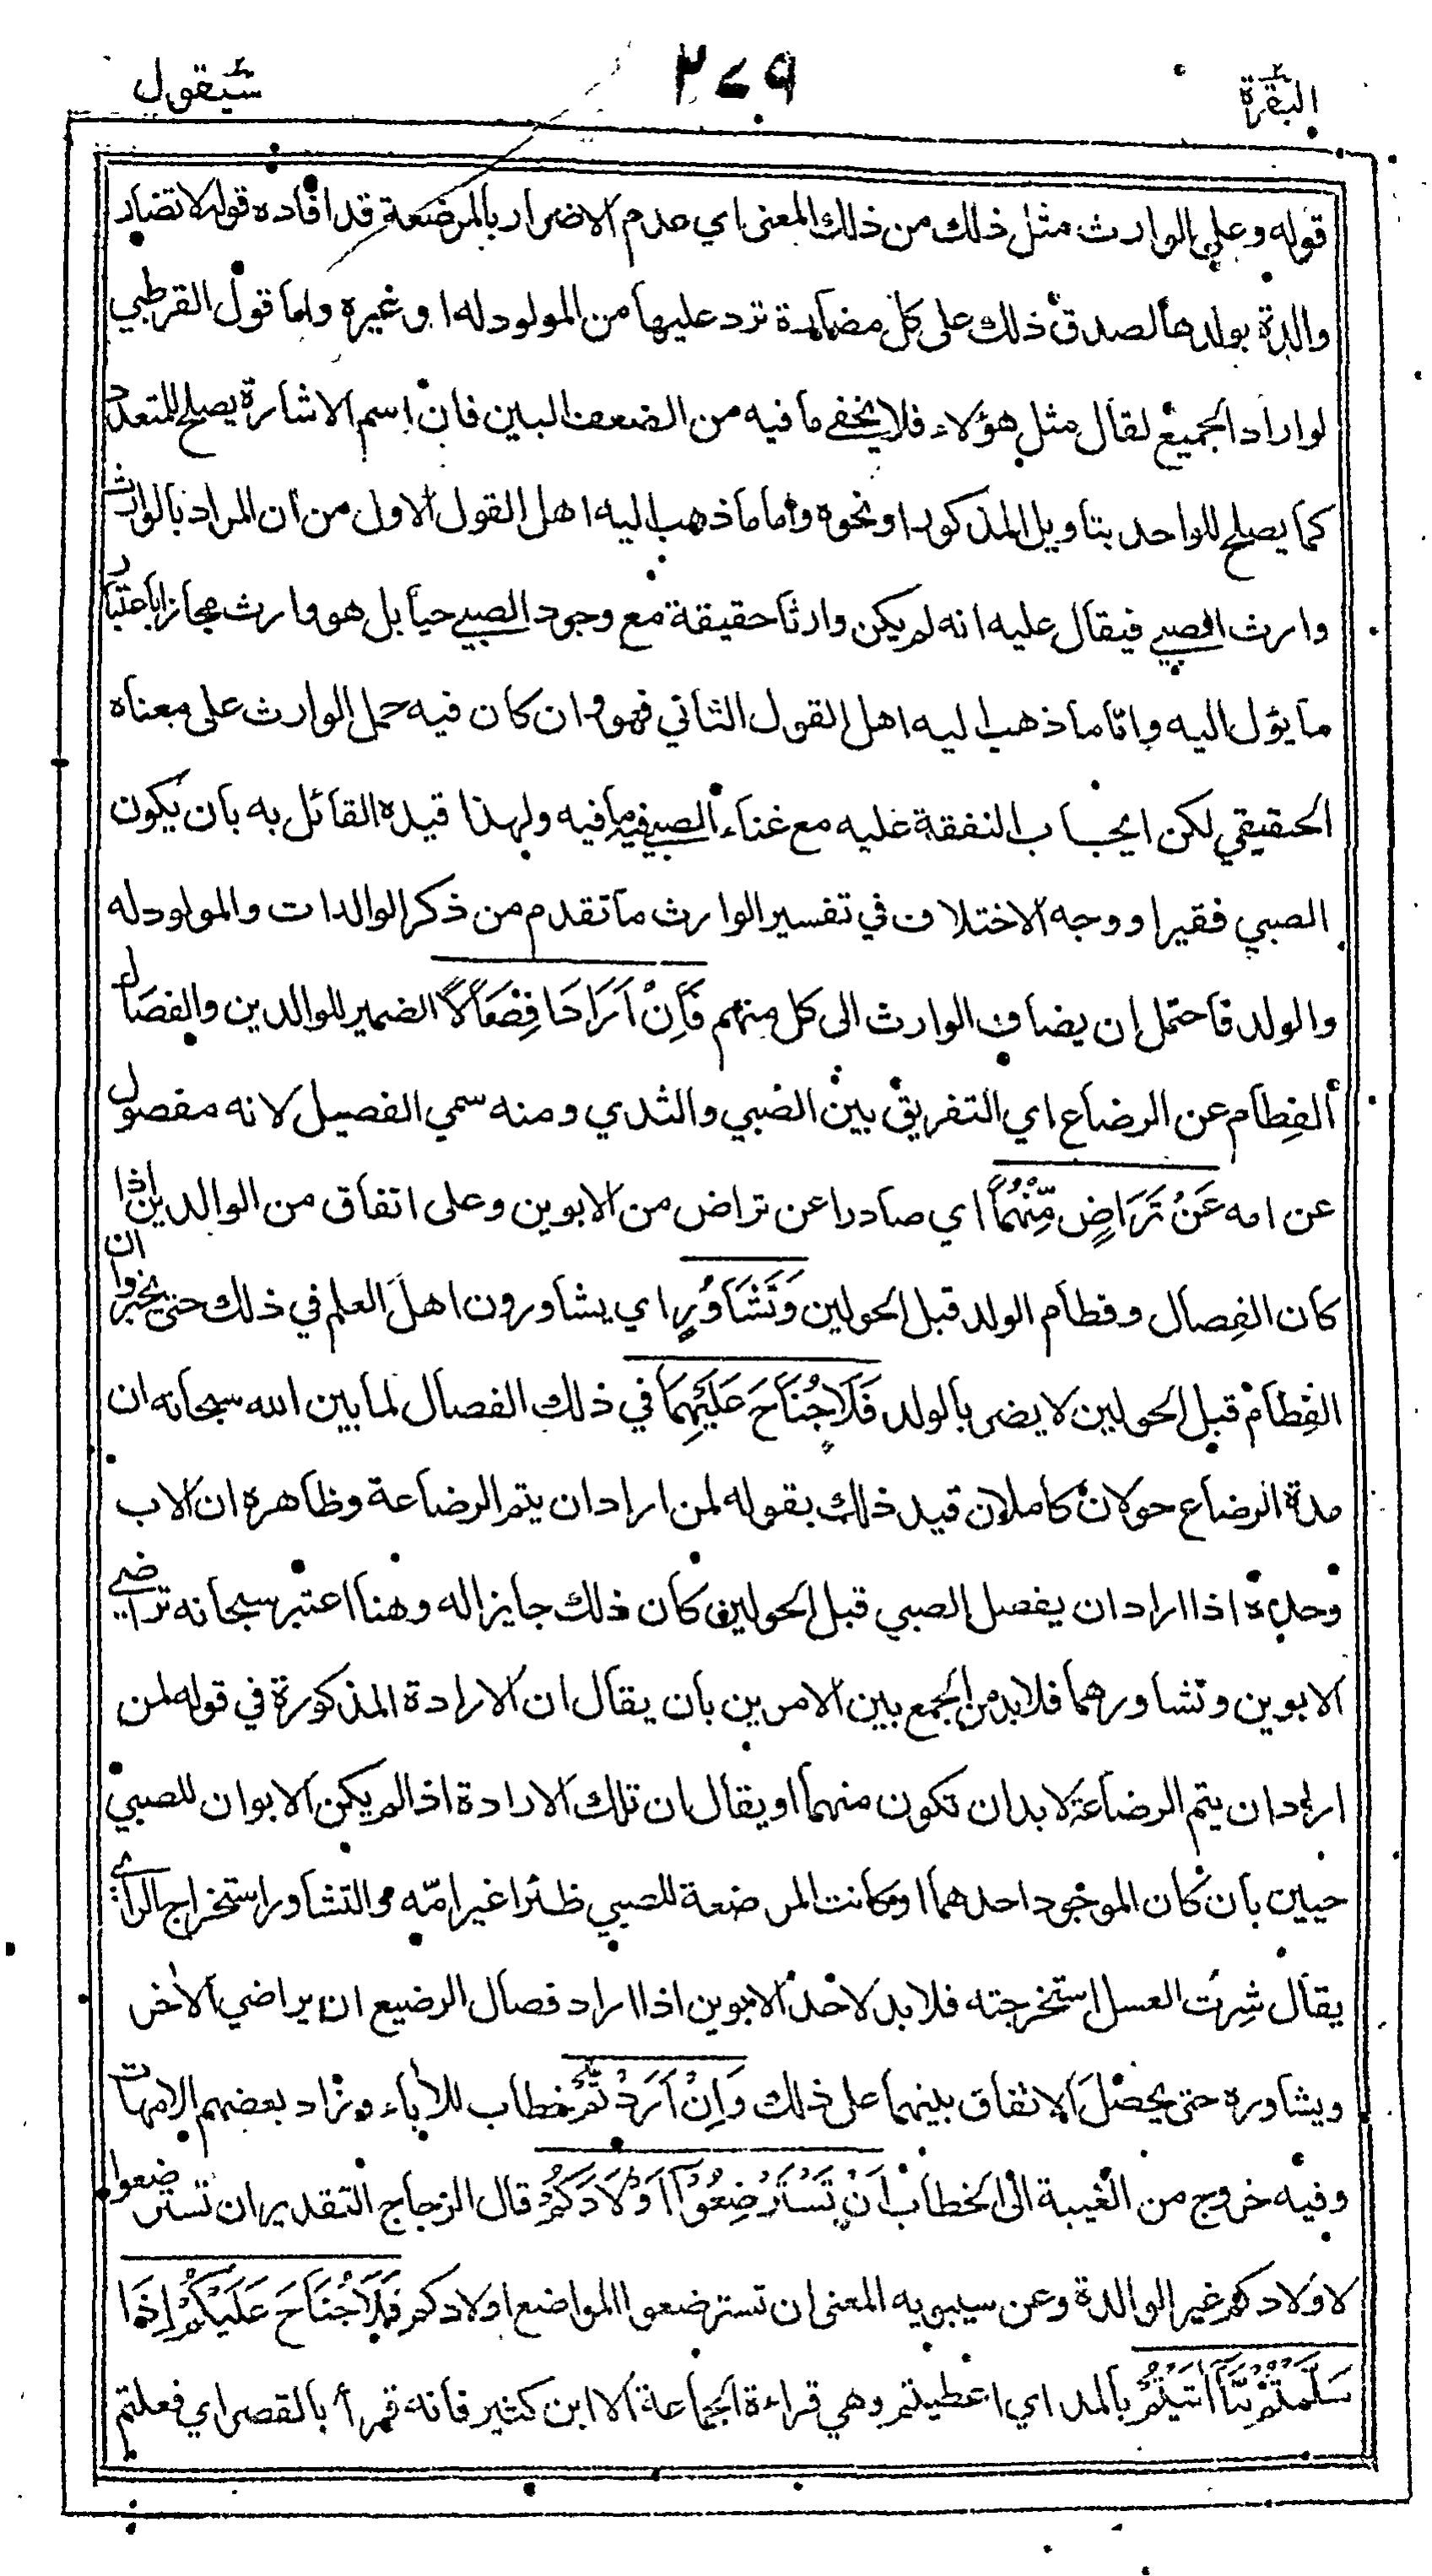 البقرة
٣٧٩
سيقول
قوله وعلى الوارث مثل ذلك من ذلك المعنى اي عدم الاضرار بالمرضعة قد افاده قوله لا تضار
والدة بولدها لصدق ذلك على كل مضارة ترد عليها من المولود له او غيره واما قول القرطبي
لو اراد الجميع لقال مثل هؤلاء فلا يخفى ما فيه من الضعف البين فان اسم الاشارة يصلح للمتعدد
كما يصلح للواحد بتاويل المذكور او نحوه واما ما ذهب اليه اهل القول الاول من ان المراد بالوارث
وارث الصبي فيقال عليه انه لم يكن وارثا حقيقة مع وجود الصبي حيا بل هو وارث مجازا باعتبار
ما يؤل اليه واما ما ذهب اليه اهل القول الثاني فهو وان كان فيه حمل الوارث على معناه
الحقيقي لكن ايجاب النفقة عليه مع غناء الصبي فيه ما فيه ولهذا قيده القائل به بان يكون
الصبي فقيرا ووجه الاختلاف في تفسير الوارث ما تقدم من ذكر الوالدات والمولود له
والولد فاحتمل ان يضاف الوارث الى كل منهم فَاِنْ اَرَادَا فِصَالًا الضمير للوالدين والفصال
الفِطام عن الرضاع اي التفريق بين الصبي والثدي ومنه سمي الفصيل لانه مفصول
عن امه عَنْ تَرَاضٍ مِّنْهُمَا اي صادرا عن تراض من الابوين وعلى اتفاق من الوالدين اذا
كان الفِصال وفطام الولد قبل الحولين وَتَشَاوُرٍ اي يشاورون اهل العلم في ذلك حتى يخبروا ان
الفِطام قبل الحولين لا يضر بالولد فَلَا جُنَاحَ عَلَيْهِمَا في ذلك الفصال لما بين الله سبحانه ان
مدة الرضاع حولان كاملان قيد ذلك بقوله لمن اراد ان يتم الرضاعة وظاهره ان الاب
وحده اذا اراد ان يفصل الصبي قبل الحولين كان ذلك جايزا له وهنا اعتبر سبحانه تراضي
الابوين وتشاورهما فلا بد من الجمع بين الامرين بان يقال ان الارادة المذكورة في قوله لمن
اراد ان يتم الرضاعة لا بد ان تكون منهما او يقال ان تلك الارادة اذا لم يكن الابوان للصبي
حيين بان كان الموجود احدهما او كانت المرضعة للصبي ظئرا غير امّه والتشاور استخراج الراي
يقال شِرت العسل استخرجته فلا بد لاحد الابوين اذا اراد فصال الرضيع ان يراضي الاخر
ويشاوره حتى يحصل الاتفاق بينهما على ذلك وَاِنْ اَرَدْتُّمْ خطاب للأباء وزاد بعضهم الامهات
وفيه خروج من الغيبة الى الخطاب اَنْ تَسْتَرْضِعُوْا اَوْلَادَكُمْ قال الزجاج التقدير ان تسترضعوا
لاولادكم غير الوالدة وعن سيبويه المعنى ان تسترضعوا المواضع اولادكم فَلَا جُنَاحَ عَلَيْكُمْ اِذَا
سَلَّمْتُمْ مَّا اٰتَيْتُمْ بالمد اي اعطيتم وهي قراءة الجماعة الا ابن كثير فانه قرأ بالقصر اي فعلتم